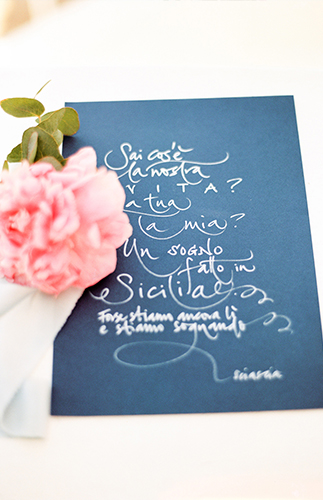 Sai cos'è
la nostra
VITA?
la tua
la mia?
Un SOGNO
fatto in
Sicilia.
Forse stiamo ancora lì
e stiamo sognando
sciascia